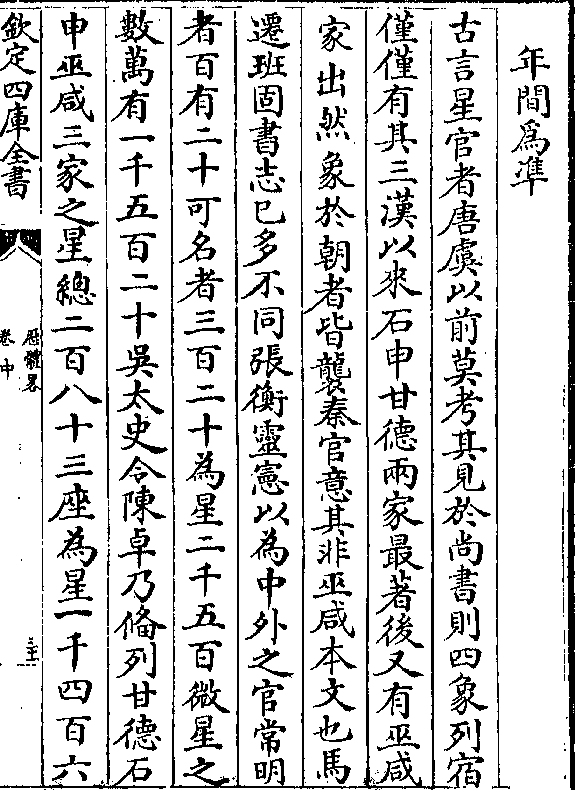 年間爲準
古言星官者唐虞以前莫考其見於尚書則四象列宿
僅僅有其三漢以來石申甘德兩家最著後又有巫咸
家出然象於朝者皆襲秦官意其非巫咸本文也馬
遷班固書志已多不同張衡靈憲以為中外之官常明
者百有二十可名者三百二十為星二千五百微星之
數萬有一千五百二十吳太史令陳卓乃偹列甘德石
申巫咸三家之星總二百八十三座為星一千四百六
欽定四庫全書
歴體畧
卷中